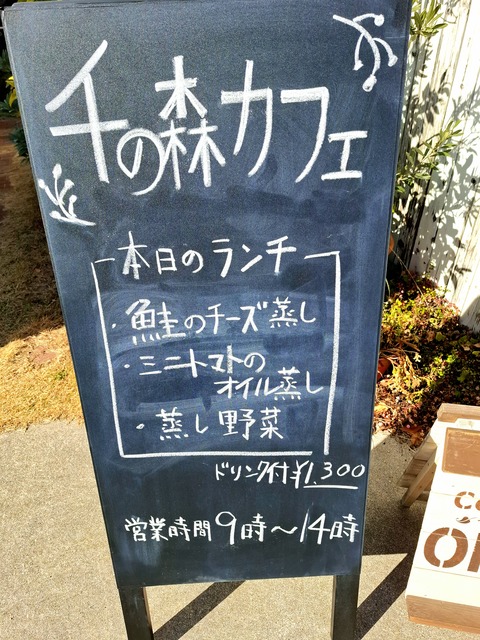 千の森カフェ
本日のランチ
・鮭のチーズ蒸し
・ミニトマトの
オイル蒸し
・蒸し野菜
ドリンク付¥1,300
営業時間 9時〜14時